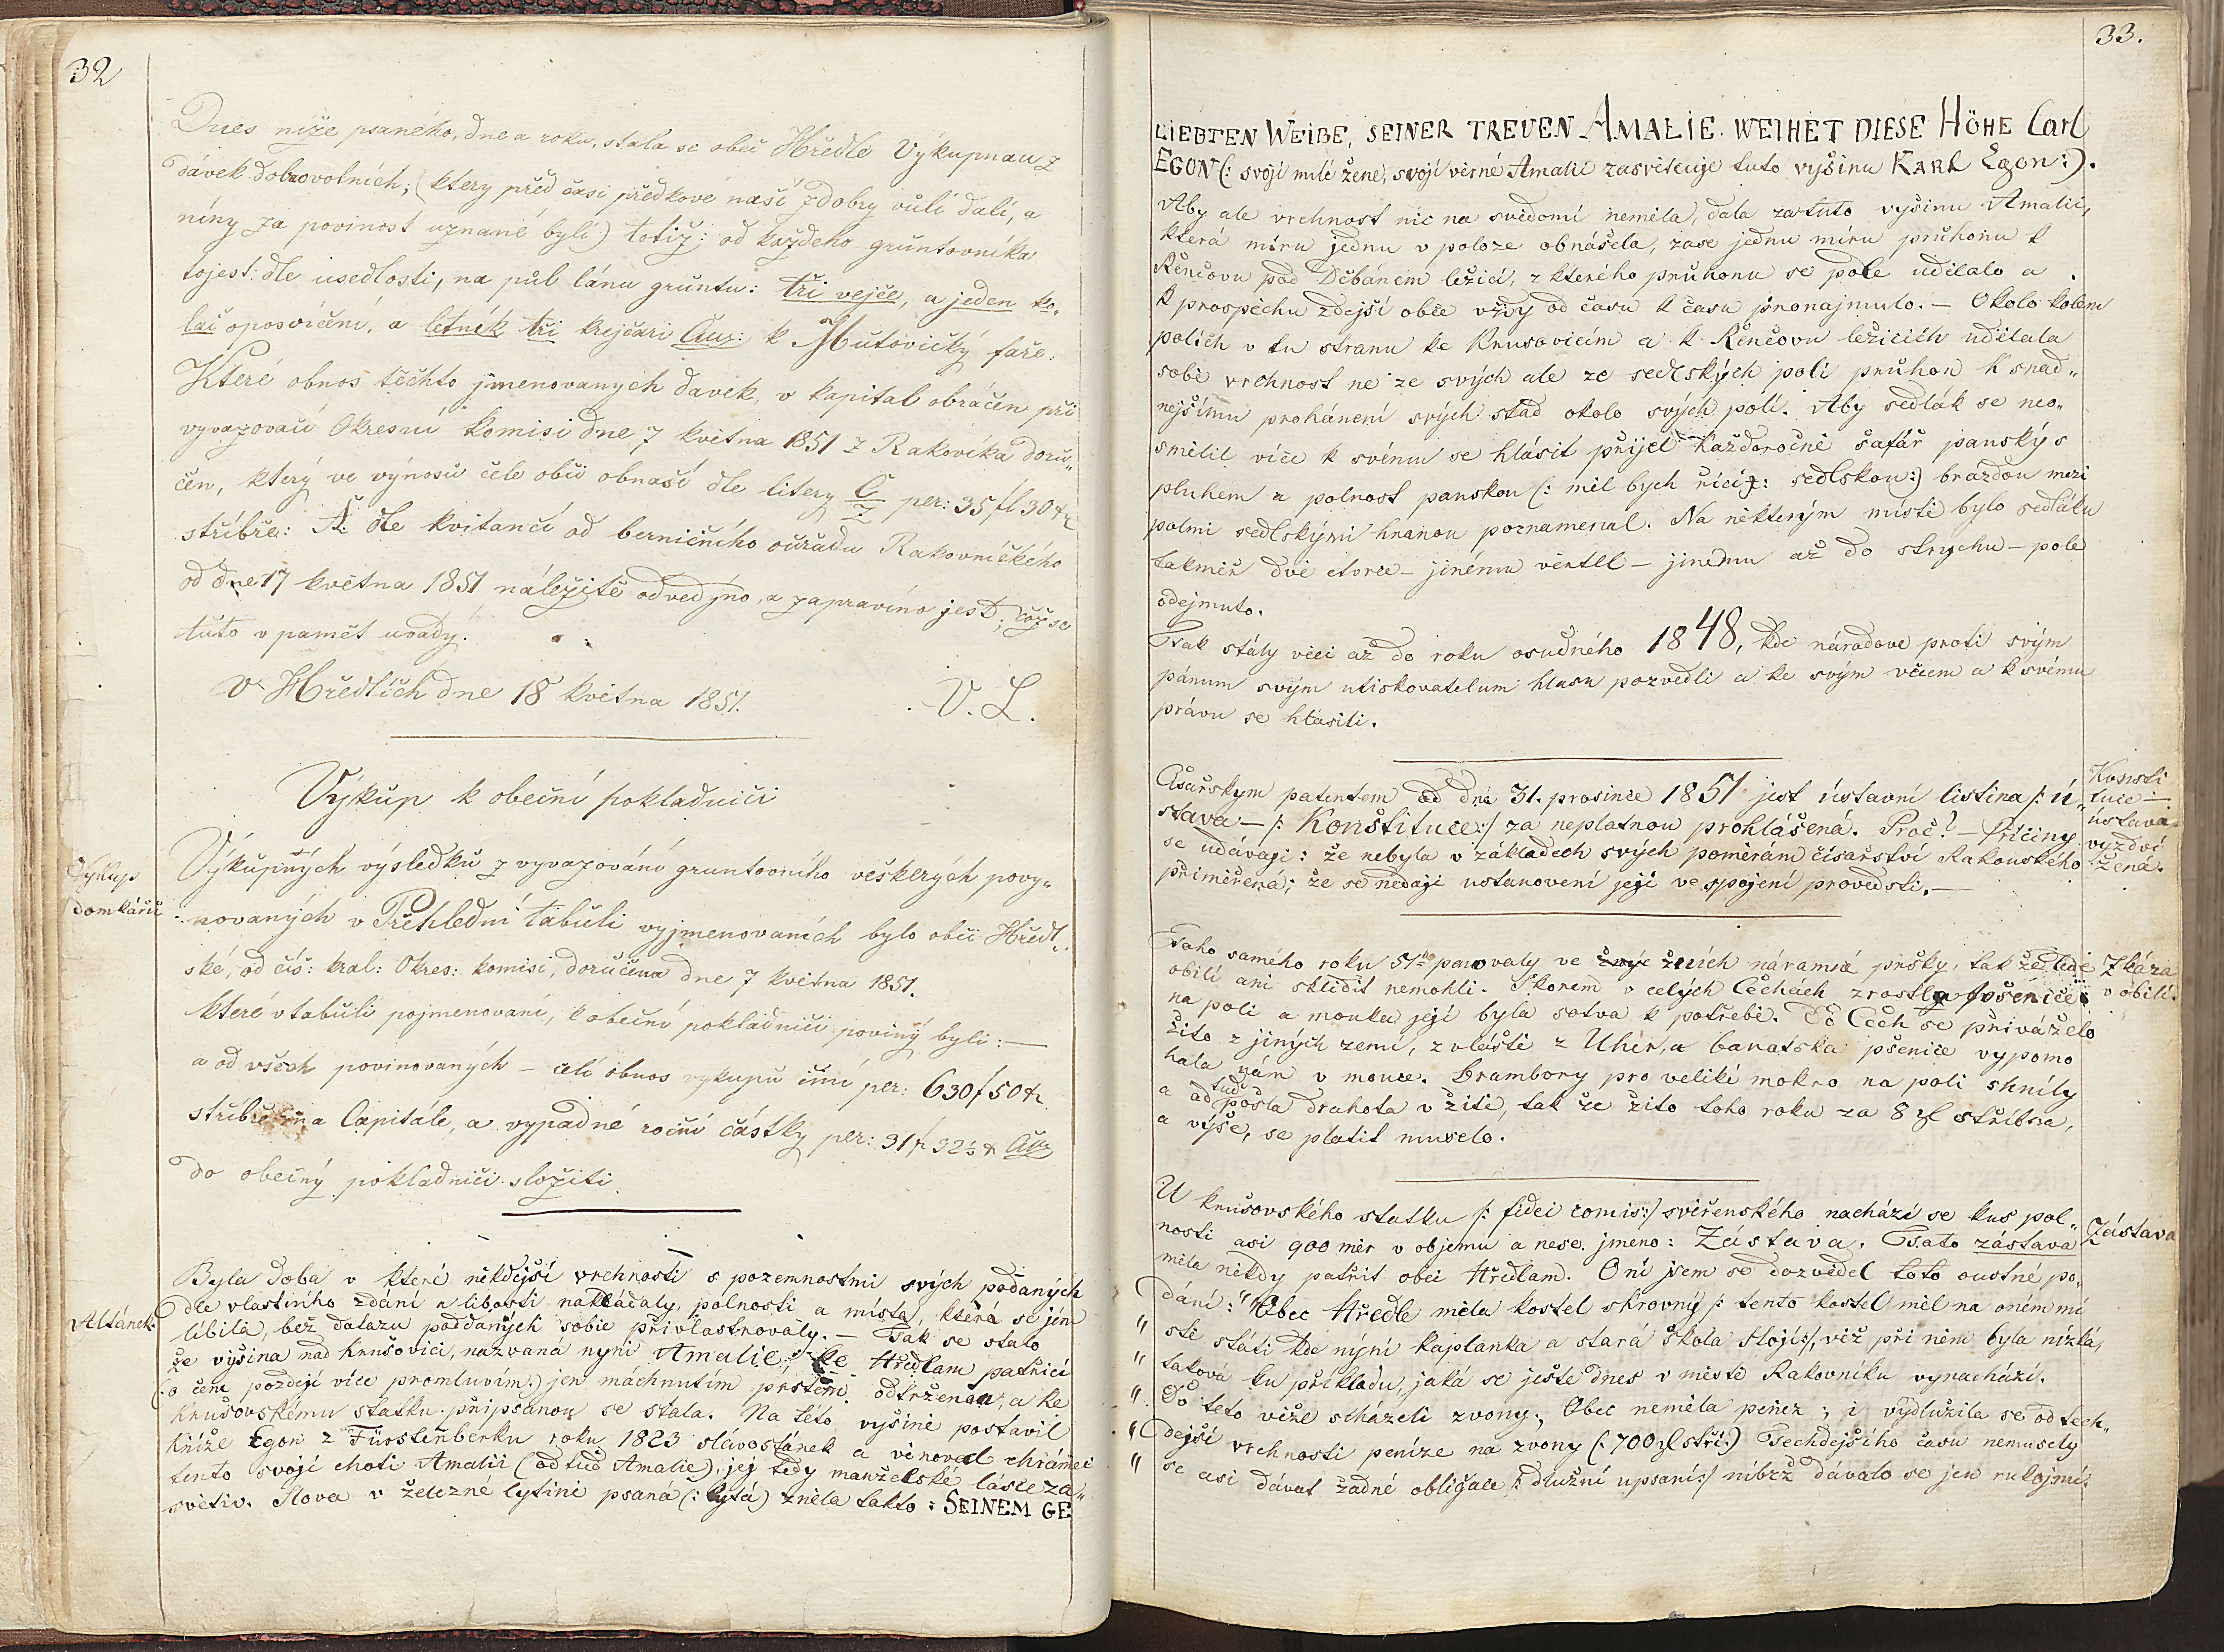 32
Dnes níže psaného, dne a roku, stala se obec Hředle Výkupnau z
dávek dobrovolních; (ktery před časi předkové naší z dobry vůlí dali, a
níny za povinost uznané byli) totiž: od každeho gruntovníka
tojest: dle usedlosti, na půl lánu gruntu: tři vejce, a jeden ko„
lač oposvícení, a letnék tři krejcari Cur: k Mutovičky faře.
Které obnos těchto jmenovanych davek, v kapital obráčen při
vyvazovací Okresní komisi dne 7 května 1851 z Rakovíka doru„
čen, který ve výnosů čele obci obnaší dle litery C per: 35 fl 30 x
stříbře: A. dle kvitancí od berničního ouřadu Rakovníckého
od dne 17 května 1851 náležitě odvedýno, a zapravíno jest, což se
tuto v pamět uvady.
V Hředlích dne 18 května 1851. V. L.
Výkup k obecní pokladnici
Výkup
domkářů
Výkupných výsledků z vyvazování gruntovního veškerých povy„
novaných v Přehlední tabuli vyjmenovaních bylo obci Hředl„
ské, od cís: kral: Okres: komisí, doručena dne 7 května 1851.
které v tabuli pojmenovaní, k obecní pokladnici poviný byli: —
a od všech povinovaných – celí obnos vykupu činí per: 630 f 50 x.
stříbře na Capitále, a vypadné roční částky per: 31 f 32½ x Cur
do obecný pokladnici složiti.
Altánek
Byla doba v které někdejší vrchnosti s pozemnostmi svých podaných
dle vlastního zdání a libosti nakládaly, polnosti a místa, která se jim
líbila, bez dotazu poddaných sobie přivlastnovaly. — Tak se stalo
že výšina nad Krušovici, nazvaná nyní Amalie, ke Hředlam patřící
(:o čem pozdeji více promluvím:) jen máchnutím prstem odtržena, a ke
Krušovskému statku připsanou se stala. Na této vyšině postavil
kníže Egon z Fürstenberku roku 1823 slávostánek a věnoval chrámec
tento svojí choti Amalii (odtud Amalie), jej tedy manželské lásce za„
světiv. Slova v železné lytině psaná (: lytá) zněla takto: SEINEM GE
33.
LIEBTEN WEIBE, SEINER TREUEN AMALIE. WEIHET DIESE HÖHE Carl
EGON (: svojí milé ženě, svojí věrné Amalii zasvěcuje tuto vyšinu KARL Egon:).
Aby ale vrchnost nic na svědomí neměla, dala za tuto vyšinu Amalii,
která míru jednu v poloze obnášela, zase jednu míru průhonu k
Řenčovu pod Džbánem ležící, z kterého průhonu se pole udělalo a
k prospěchu zdejší obce vždy od času k času pronajmulo. — Okolo kolem
polích v tu stranu ke Krusovicím a k Řenčovu ležicích udělala
sobě vrchnost ne ze svých ale ze sedlských polí průhon k snad„
nejšímu prohánení svých stád okolo svých polí. Aby sedlák se neo„
smělil více k svému se hlásit přijel každoročně šafář panský s
pluhem a polnost panskou (: měl bych říci: sedlskou:) brazdou mezi
polmi sedlskými hranou poznamenal. Na některým místě bylo sedláku
takměř dvě čtvrce – jinému věrtel – jinému až do strychu – pole
odejmuto.
Tak stály věci až do roku osudného 1848, kde národove proti svým
pánum svým utiskovatelum hlasu pozvedli a ke svým věcem a k svému
právu se hlásili.
Císařskym patentem od dne 31. prosince 1851 jest ústavní listina /: ú„
stava – /: Konštituce:/ za neplatnou prohlášená. Proč? – Příčiny
se udávají: že nebyla v základech svých poměrám císařství Rakouského
přiměřená; že se nedají ustanovení její ve spojení provedsti. —
Konsti
tuce —
ústava
vyzdvi
žená.
Toho samého roku 51ho panovaly ve žních náramné pršky, tak že lidé
obilí ani sklidit nemohli. Skorem v celých Čechách zrostla pšenice
na poli a mouka její byla sotva k potřebě. Do Čech se přiváželo
žito z jiných zemí, zvláště z Uher, a banatska pšenice vypomo
hala nám v mouce. Brambory pro veliké mokro na poli shnily
a odtud pošla drahota v žitě, tak že žito toho roku za 8 zl stříbra,
a výše, se platit muselo.
Zkáza
v obilí.
U Krušovského statku /: fidei comis:/ svěřenského nachází se kus pol„
nosti asi 900 měr v objemu a nese jmeno: Zástava. Tato zástava
měla někdy patřit obci Hředlam. O ní jsem se dozvěděl toto oustné po„
dání: "Obec Hředle měla kostel skrovný /: tento kostel měl na oném mí
" stě státi kde nýní kaplanka a stará škola stojí:/, věž při něm byla nízká,
" taková ku příkladu, jaká se ještě dnes v městě Rakovníku vynachází.
" Do této věže scházeli zvony; Obec neměla peněz; i vydlužila se od tech„
" dejší vrchnosti peníze na zvony (: 700 zl stří:) Techdejšího času nemusely
" se asi dávat žadné obligace /: dlužní upsaní:/ níbrž dávalo se jen rukojmí:
Zástava